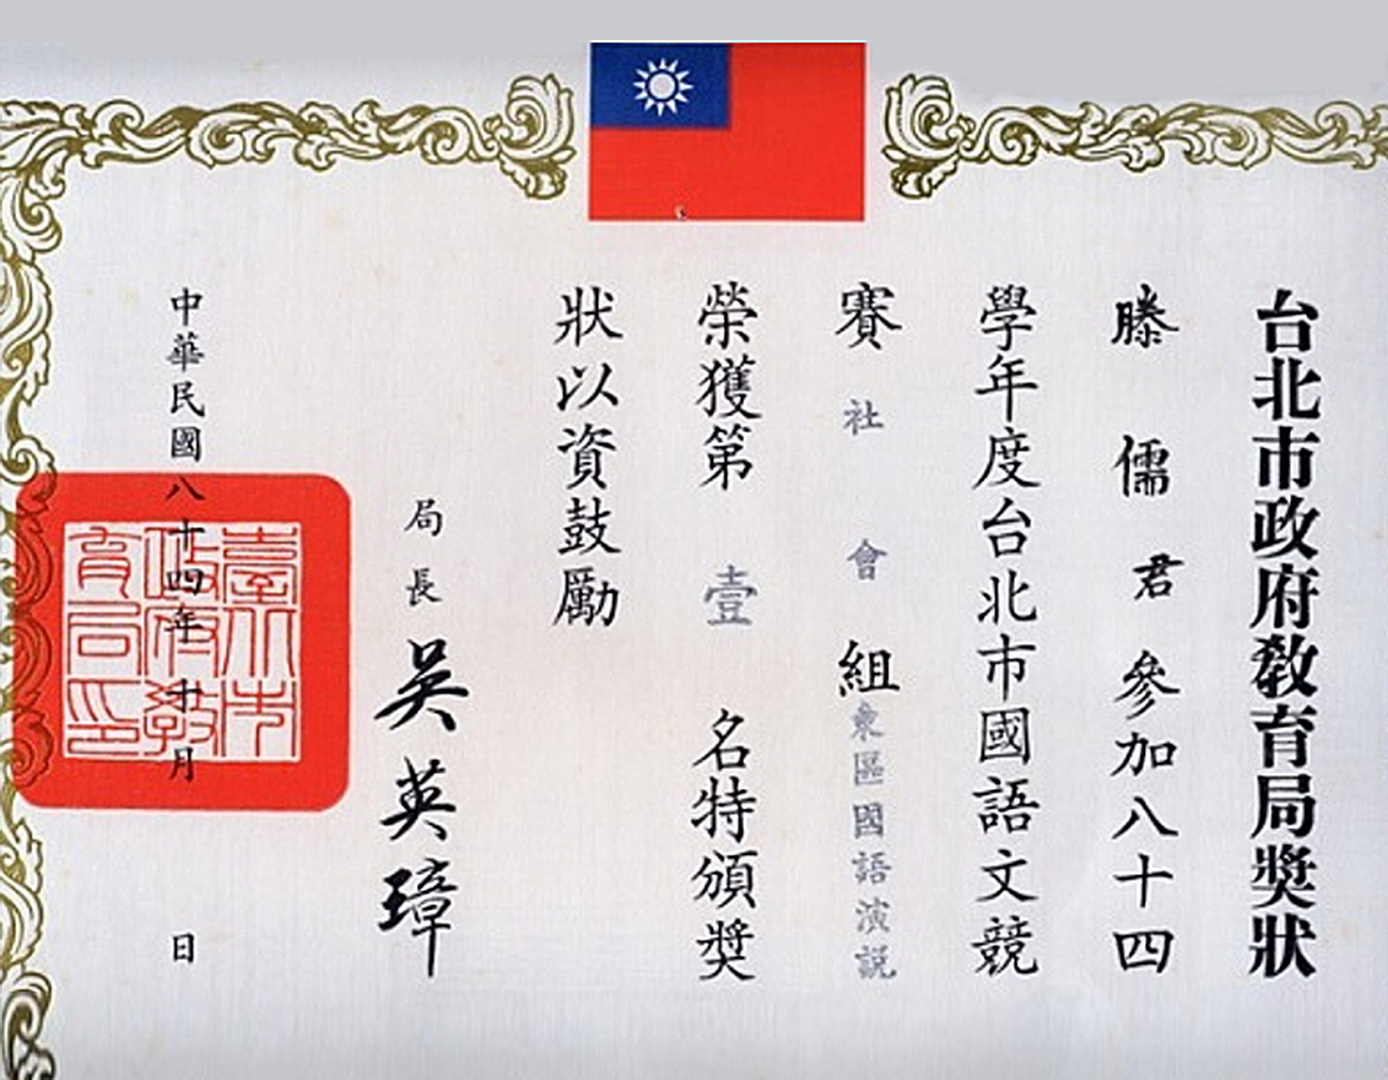 台北市政府教育局獎狀
滕儒君參加八十四
學年度台北市國語文競
賽社會組東區國語演説
榮獲第壹名特頒獎
狀以資鼓勵
局長吳英璋
中華民國八十四年十月日
臺北市
政府教
育局印